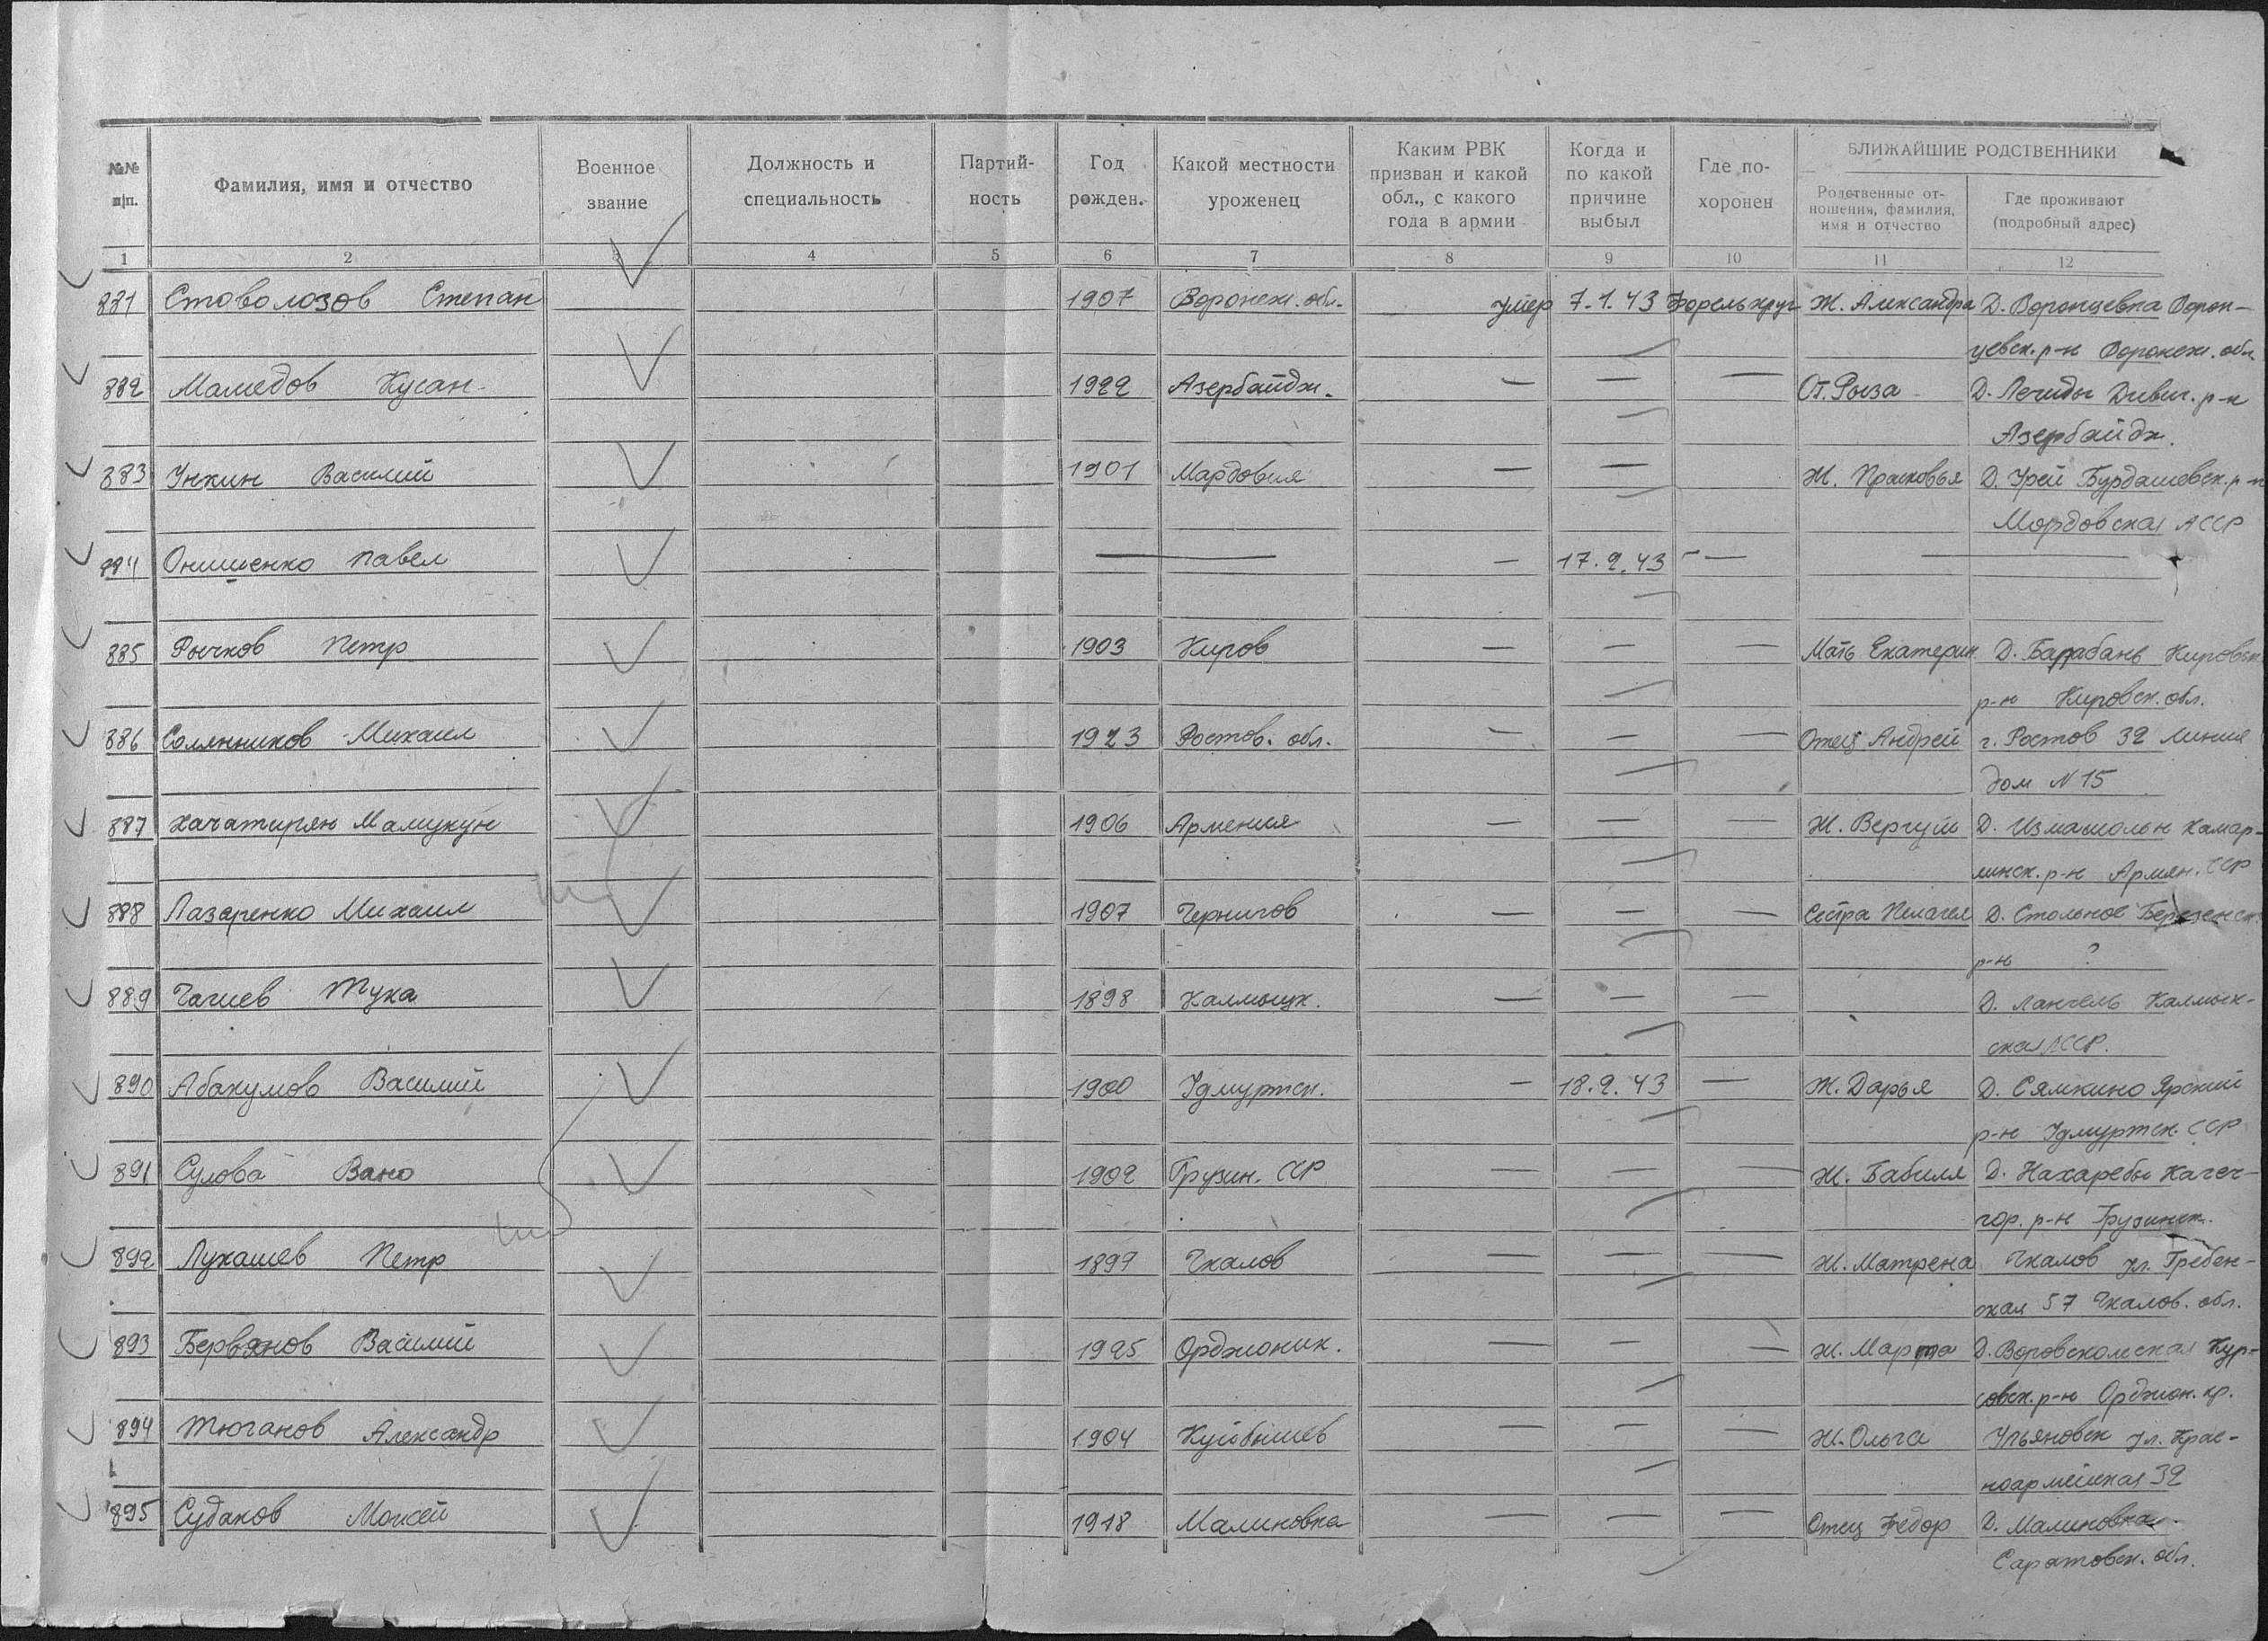 №№ п/п. Фамилия, имя и отчество Военное звание Должность и специальность Партий-ность Год рожден. Какой местности уроженец Каким РВК призван и какой обл., с какого года в армии Когда и по какой причине выбыл Где по-хоронен БЛИЖАЙШИЕ РОДСТВЕННИКИ
Родственные от-ношения, фамилия, имя и отчество Где проживают (подробный адрес)
1 2 3 4 5 6 7 8 9 10 11 12
881 Стоволозов Степан 1907 Воронеж. обл. умер 7.1.43 Форелькруг Ж. Александра Д. Воронцевка Ворон-
цевск. р-н Воронеж. обл.
882 Мамедов Кусан 1922 Азербайдж. — — — От. Рыза Д. Лечиды Дивич. р-н
Азербайдж.
883 Ункин Василий 1901 Мардовия — — Ж. Прасковья Д. Урей Бурдашовск. р-н
Мордовская АССР
884 Онишенко Павел — — 17.2.43 — —
885 Рычков Петр 1903 Киров — — — Мать Екатерин. Д. Барабань Кировск.
р-н Кировск. обл.
886 Солянников Михаил 1923 Ростов. обл. — — — Отец Андрей г. Ростов 32 линия
дом N 15
887 Хачатирян Мамукун 1906 Армения — — — Ж. Вергуш Д. Измашолын Камар-
линск. р-н Армян. ССР
888 Лазаренко Михаил 1907 Чернигов — — — Сестра Пелагея Д. Стольное Березенск.
р-н ?
889 Чагиев Тука 1898 Калмыцк. — — — Д. Ланчель Калмык-
ская АССР.
890 Абакумов Василий 1900 Удмуртск. — 18.2.43 — Ж. Дарья Д. Сямкино Ярский
р-н Удмуртск. ССР
891 Сулова Вано 1902 Грузин. ССР — — — Ж. Бабиля Д. Нахаребы Качеч-
гор. р-н Грузинск.
892 Лукашев Петр 1897 Чкалов — — — Ж. Матрена Чкалов ул. Гребен-
ская 57 Чкалов. обл.
893 Бервянов Василий 1925 Орджоник. — — — Ж. Марта Д. Воровсколеская Кур-
совск. р-н Орджон. кр.
894 Тюганов Александр 1904 Куйбышев — — — Ж. Ольга Ульяновск ул. Крас-
ноармейская 32
895 Судаков Моисей 1918 Малиновка — — — Отец Федор Д. Малиновка
Саратовск. обл.